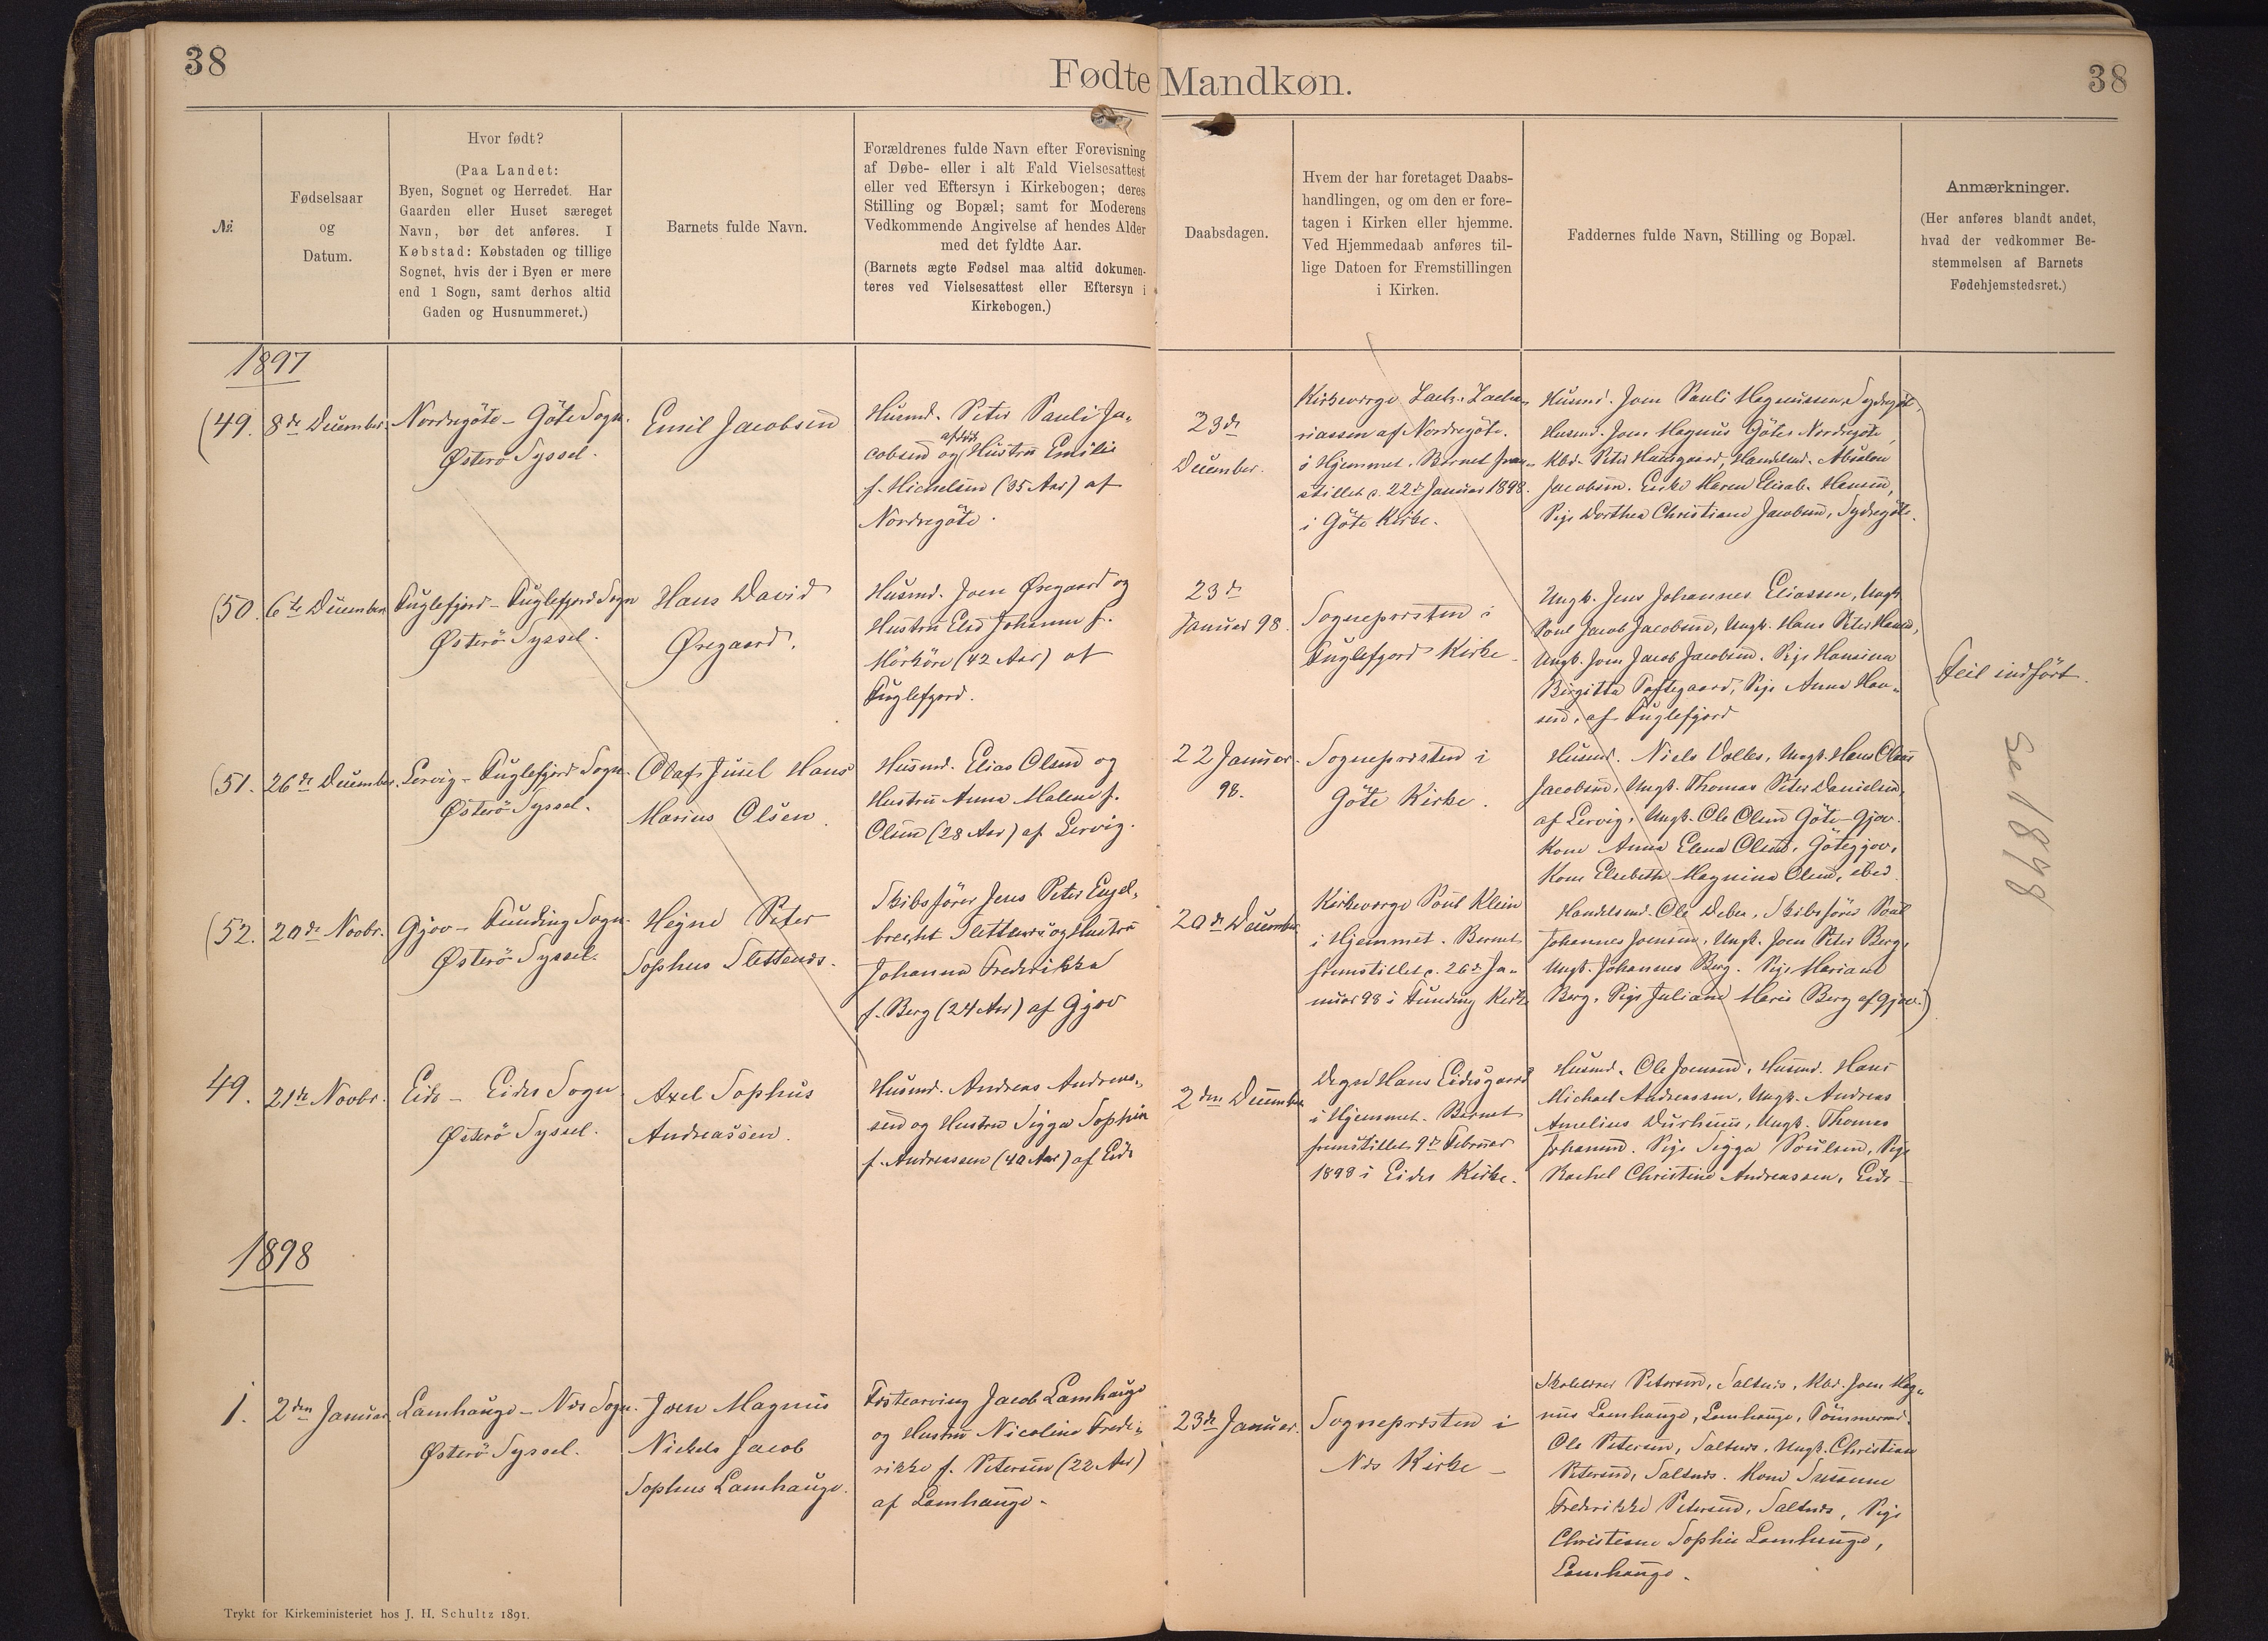 38
Fødte Mandkøn.
38
№
Fødselsaar
og
Datum.
Hvor født?
(Paa Landet:
Byen, Sognet og Herredet. Har
Gaarden eller Huset særeget
Navn, bør det anføres. I
Købstad: Købstaden og tillige
Sognet, hvis der i Byen er mere
end 1 Sogn, samt derhos altid
Gaden og Husnummeret.)
Barnets fulde Navn.
Forældrenes fulde Navn efter Forevisning
af Døbe- eller i alt Fald Vielsesattest
eller ved Eftersyn i Kirkebogen; deres
Stilling og Bopæl; samt for Moderens
Vedkommende Angivelse af hendes Alder
med det fyldte Aar.
(Barnets ægte Fødsel maa altid dokumen-
teres ved Vielsesattest eller Eftersyn i
Kirkebogen.)
Daabsdagen.
Hvem der har foretaget Daabs-
handlingen, og om den er fore-
tagen i Kirken eller hjemme.
Ved Hjemmedaab anføres til-
lige Datoen for Fremstillingen
i Kirken.
Faddernes fulde Navn, Stilling og Bopæl.
Anmærkninger.
(Her anføres blandt andet,
hvad der vedkommer Be-
stemmelsen af Barnets
Fødehjemstedsret.)
1897
(49.
8de December.
Nordregöte - Göte Sogn.
Österö Syssel.
Emil Jacobsen
Husmd. Peter Pauli Ja-
cobsen og Hustru Emilie
f. Michelsen (35 Aar) af
Nordregöte.
23de
December.
Kirkeværge Zach. Zacha-
riassen af Nordregöte.
i Hjemmet. Barnet frem-
stillet d. 22de Januar 1898.
i Göte Kirke.
Husmd. Joen Pauli Magnussen, Sydregöte,
Husmd. Joen Magnus Göte, Nordregöte,
Kbd. Peter Hansgaard, Handelsmd. Absalon
Jacobsen. Enke Karen Elisab. Hansen,
Pige Dorthea Christiane Jacobsen, Sydregöte.
(50.
6te December
Fuglefjord - Fuglefjord Sogn
Österö Syssel.
Hans David
Øregaard.
Husmd. Joen Øregaard og
Hustru Elsb Johanne f.
Mörköre (42 Aar) af
Fuglefjord.
23de
Januar 98.
Sognepræsten i
Fuglefjord Kirke
Ungk. Jens Johannes Eliassen, Ungk.
Poul Jacob Jacobsen, Ungk. Hans Peter Hansen,
Ungk. Joen Jacob Jacobsen. Pige Hansina
Birgitta Toftegaard, Pige Anna Han-
sen, af Fuglefjord
Feil indført.
Se 1898
(51.
26de December.
Lervig - Fuglefjord Sogn.
Österö Syssel.
Olaf Juul Hans
Marius Olsen.
Husmd. Elias Olsen og
Hustru Anna Malene f.
Olsen (28 Aar) af Lervig.
22 Januar.
98.
Sognepræsten i
Göte Kirke.
Husmd. Niels Dalbo, Ungk. Hans Oluf
Jacobsen, Ungk. Thomas Peter Danielsen,
af Lervig, Ungk. Ole Olsen Göte-Gjov.
Kone Anna Elena Olsen, Götegjov,
Kone Elsebeth Magnina Olsen, ibid.
(52.
20de Novbr.
Gjov - Funding Sogn.
Österö Syssel.
Høgne Peter
Sophus Slettenæs.
Skibsfører Jens Peter Engel-
brecht Slettenæs og Hustru
Johanna Frederikke
f. Berg (24 Aar) af Gjov
20de December
Kirkeværge Poul Klein
i Hjemmet. Barnet
fremstillet d. 26de Ja-
nuar 98 i Funding Kirke
Handelsmd. Ole Debes, Skibsfører Poul
Johannes Joensen, Ungk. Joen Peter Berg,
Ungk. Johannes Berg. Pige Mariane
Berg, Pige Juliane Marie Berg af Gjov.)
49.
21de Novbr.
Eide - Eides Sogn
Österö Syssel.
Axel Sophus
Andreassen.
Husmd. Andreas Andreas-
sen og Hustru Sigga Sophia
f. Andreassen (40 Aar) af Eide
2den December
Degnen Hans Eidesgaard
i Hjemmet. Barnet
fremstillet 9de Februar
1898 i Eides Kirke.
Husmd. Ole Joensen, Husmd. Hans
Michael Andreassen, Ungk. Andreas
Amelius Durhuus, Ungk. Thomas
Johannes. Pige Sigga Poulsen, Pige
Rachel Christine Andreassen, Eide
1898
1.
2den Januar.
Lamhauge - Næs Sogn.
Österö Syssel.
Joen Magnus
Nickels Jacob
Sophus Lamhauge.
Fæstearving Jacob Lamhauge
og Hustru Nicoline Frede-
rikke f. Petersen (22 Aar)
af Lamhauge.
23de Januar.
Sognepræsten i
Næs Kirke
Skolelærer Petersen, Saltnæs, Kbd. Joen Mag-
nus Lamhauge, Lamhauge, Tömmermd.
Ole Petersen, Saltnæs. Ungk. Christian
Petersen, Saltnæs. Kone Susanne
Frederikke Petersen, Saltnæs, Pige
Christiane Sophie Lamhauge,
Lamhauge.
Trykt for Kirkeministeriet hos J. H. Schultz 1891.